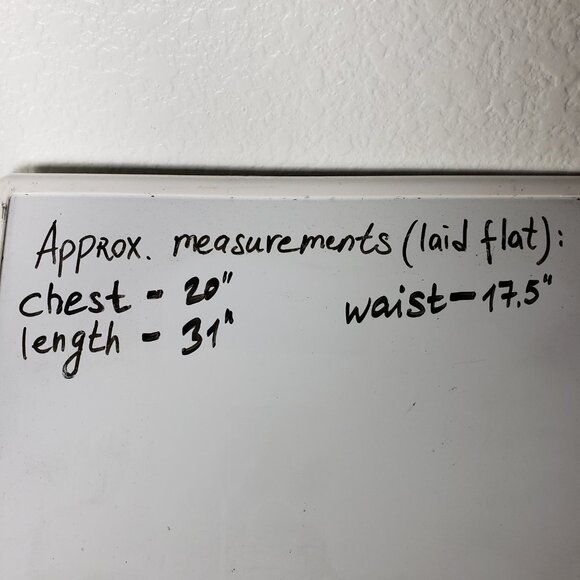 Approx. measurements (laid flat):
chest - 20" waist - 17.5"
length - 31"